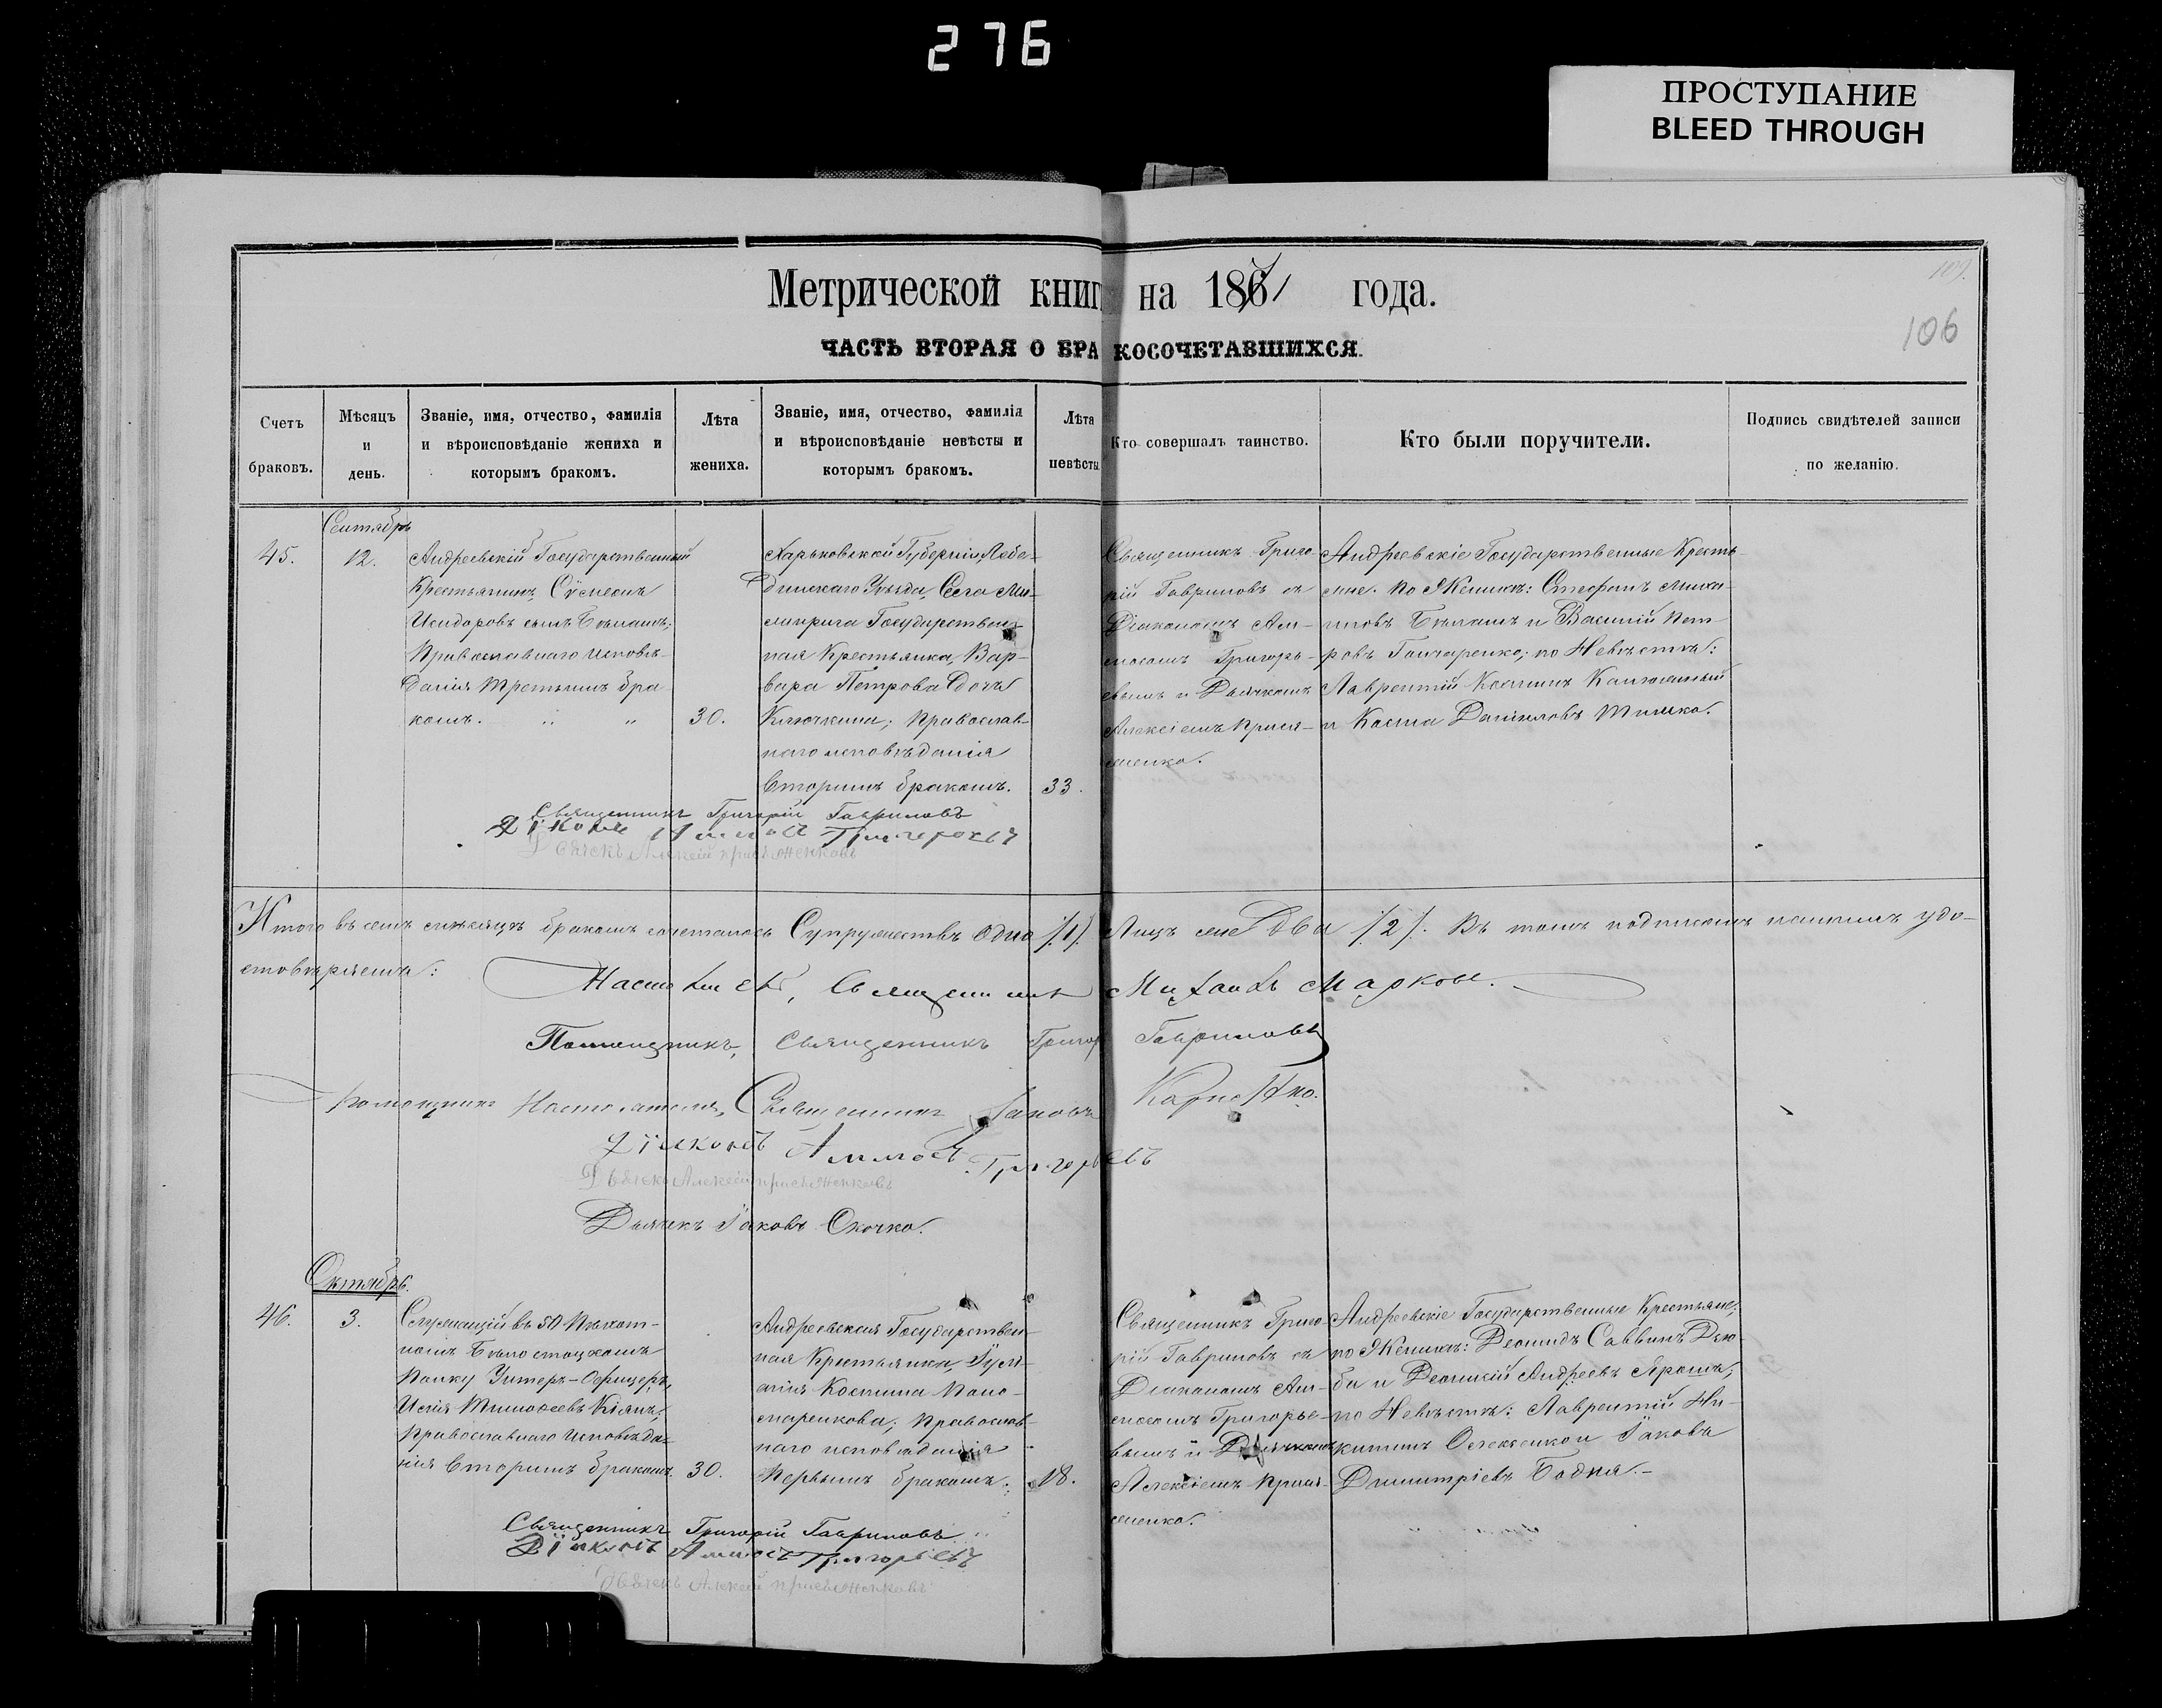 276
ПРОСТУПАНИЕ
BLEED THROUGH
Метрической книг на 1871 года.
109.
106
ЧАСТЬ ВТОРАЯ О БРАКОСОЧЕТАВШИХСЯ.
Счетъ
браковъ.
Мѣсяцъ
и
день.
Званіе, имя, отчество, фамилія
и вѣроисповѣданіе жениха и
которымъ бракомъ.
Лѣта
жениха.
Званіе, имя, отчество, фамилія
и вѣроисповѣданіе невѣсты и
которымъ бракомъ.
Лѣта
невѣсты
Кто совершалъ таинство.
Кто были поручители.
Подпись свидѣтелей записи
по желанію.
Сентябрь
45.
12.
Андреевскій Государственный
Крестьянинъ,
Исидоровъ сынъ Бѣлашъ;
Православнаго исповѣ-
данія Третьимъ бра
комъ.
30.
Харьковской Губерніи, Лебе-
динскаго Уѣзда, Села
Государствен-
ная Крестьянка, Вар-
вара Петрова дочь
Ключкина; Православ-
наго исповѣданія
Вторымъ бракомъ.
33.
Священникъ Григо-
рій Гавриловъ съ
Діакономъ Ам-
мосомъ Григорь-
евымъ и Дьячкомъ
Алексіемъ
Андреевскіе Государственные Кресть-
яне. По Женихѣ: Стефанъ Миха-
иловъ Бѣлашъ и Василій Пет-
ровъ Гончаренко; по Невѣстѣ:
Лаврентій
и Косма Даніиловъ Тимко.
Священникъ Григорій Гавриловъ
Діаконъ Аммосъ Григорьевъ
Дьячекъ Алексій
Итого въ семъ мѣсяцѣ бракомъ сочеталось Супружествъ одно /1/. Лицъ же Два /2/. Въ томъ подписомъ нашимъ удо-
стовѣряемъ:
Настоятель, Священникъ Михаилъ Марковъ.
Помощникъ, Священникъ Григор Гавриловъ
Помощникъ Настоятеля, Священникъ Іаковъ
Діаконъ Аммосъ Григорьевъ
Дьячекъ Алексій
Дьячекъ Іаковъ Скочко.
Октябрь.
46.
3.
Служащій въ 50 Пѣхот-
номъ Бѣлостоцкомъ
Полку Унтеръ-Офицеръ,
Исаія Тимоѳеевъ Кіянъ;
Православнаго Исповѣда-
нія Вторымъ бракомъ.
30.
Андреевская Государствен-
ная Крестьянка, Іули-
анія Космина Поно-
маренкова; Православ-
наго исповѣданія
Первымъ бракомъ.
18.
Священникъ Григо-
рій Гавриловъ съ
Діакономъ Ам-
мосомъ Григорье-
вымъ и Дьячкомъ
Алексіемъ
Андреевскіе Государственные Крестьяне;
по Женихѣ: Леонидъ Саввинъ Дзю-
ба и Леонтій Андреевъ Ярошъ;
по Невѣстѣ: Лаврентій Ни-
китинъ и Іаковъ
Димитріевъ Бодня.-
Священникъ Григорій Гавриловъ
Діаконъ Аммосъ Григорьевъ
Дьячекъ Алексій